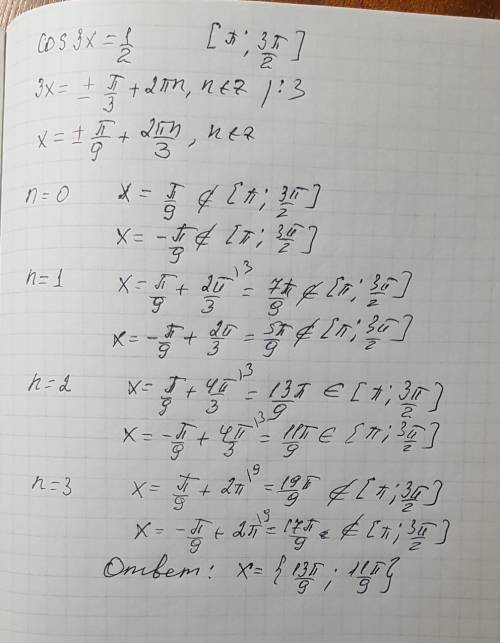 cos 3x = 1/2 [π; 3π/2]
3x = ± π/3 + 2πn, n ∈ z /: 3
x = ± π/9 + 2πn/3, n ∈ z
n=0 x = π/9 ∉ [π; 3π/2]
x = -π/9 ∉ [π; 3π/2]
n=1 x = π/9 + 2π/3 \3 = 7π/9 ∉ [π; 3π/2]
x = -π/9 + 2π/3 = 5π/9 ∉ [π; 3π/2]
n=2 x = π/9 + 4π/3 \3 = 13π/9 ∈ [π; 3π/2]
x = -π/9 + 4π/3 \3 = 11π/9 ∈ [π; 3π/2]
n=3 x = π/9 + 2π \9 = 19π/9 ∉ [π; 3π/2]
x = -π/9 + 2π \9 = 17π/9 ∉ [π; 3π/2]
Ответ: x = {13π/9; 11π/9}